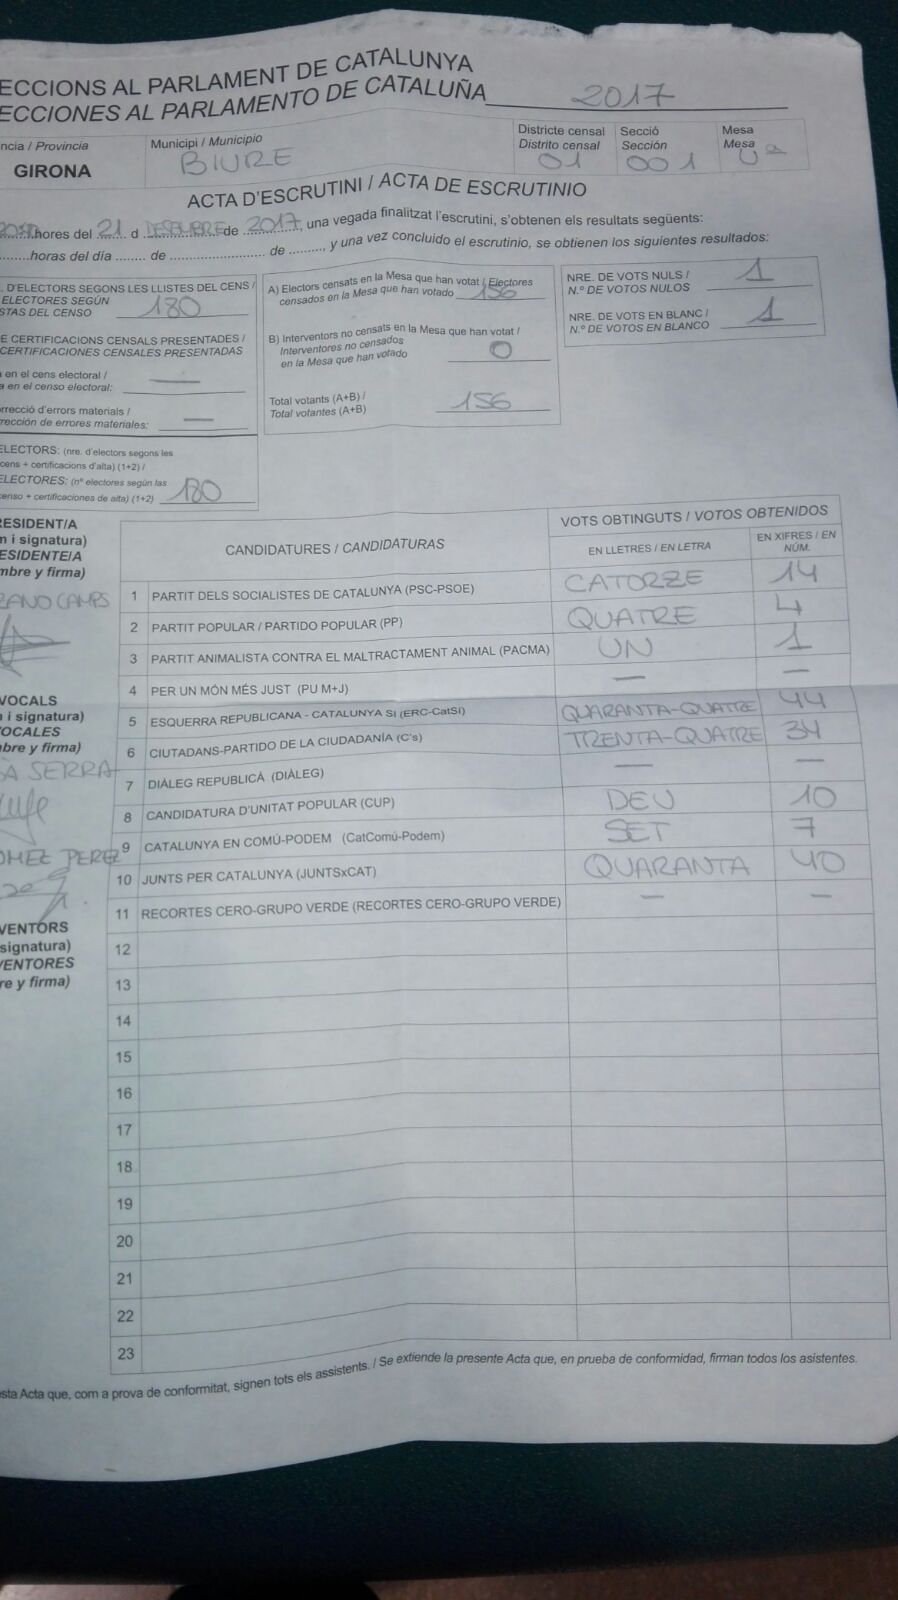 ECCIONS AL PARLAMENT DE CATALUNYA
ECCIONES AL PARLAMENTO DE CATALUÑA 2017
ncia / Provincia
GIRONA
Municipi / Municipio
BIURE
Districte censal
Distrito censal
01
Secció
Sección
001
Mesa
Mesa
Ua
ACTA D'ESCRUTINI / ACTA DE ESCRUTINIO
hores del 21 d DESEMBRE de 2017, una vegada finalitzat l'escrutini, s'obtenen els resultats següents:
horas del día ........ de ........................ de ........., y una vez concluido el escrutinio, se obtienen los siguientes resultados:
. D'ELECTORS SEGONS LES LLISTES DEL CENS /
ELECTORES SEGÚN
STAS DEL CENSO 180
E CERTIFICACIONS CENSALS PRESENTADES /
CERTIFICACIONES CENSALES PRESENTADAS
a en el cens electoral /
a en el censo electoral: —
rrecció d'errors materials /
rección de errores materiales: —
ELECTORS: (nre. d'electors segons les
cens + certificacions d'alta) (1+2) /
ELECTORES: (nº electores según las
censo + certificaciones de alta) (1+2) 180
A) Electors censats en la Mesa que han votat / Electores
censados en la Mesa que han votado 156
B) Interventors no censats en la Mesa que han votat /
Interventores no censados
en la Mesa que han votado 0
Total votants (A+B) /
Total votantes (A+B) 156
NRE. DE VOTS NULS /
N.º DE VOTOS NULOS 1
NRE. DE VOTS EN BLANC /
N.º DE VOTOS EN BLANCO 1
RESIDENT/A
n i signatura)
ESIDENTE/A
mbre y firma)
CAMPS
VOCALS
n i signatura)
OCALES
bre y firma)
SERRA
PEREZ
VENTORS
signatura)
VENTORES
re y firma)
CANDIDATURES / CANDIDATURAS
VOTS OBTINGUTS / VOTOS OBTENIDOS
EN LLETRES / EN LETRA
EN XIFRES / EN
NÚM.
1 PARTIT DELS SOCIALISTES DE CATALUNYA (PSC-PSOE) CATORZE 14
2 PARTIT POPULAR / PARTIDO POPULAR (PP) QUATRE 4
3 PARTIT ANIMALISTA CONTRA EL MALTRACTAMENT ANIMAL (PACMA) UN 1
4 PER UN MÓN MÉS JUST (PU M+J) — —
5 ESQUERRA REPUBLICANA - CATALUNYA SI (ERC-CatSí) QUARANTA-QUATRE 44
6 CIUTADANS-PARTIDO DE LA CIUDADANÍA (C's) TRENTA-QUATRE 34
7 DIÀLEG REPUBLICÀ (DIÀLEG) — —
8 CANDIDATURA D'UNITAT POPULAR (CUP) DEU 10
9 CATALUNYA EN COMÚ-PODEM (CatComú-Podem) SET 7
10 JUNTS PER CATALUNYA (JUNTSxCAT) QUARANTA 40
11 RECORTES CERO-GRUPO VERDE (RECORTES CERO-GRUPO VERDE) — —
12
13
14
15
16
17
18
19
20
21
22
23
sta Acta que, com a prova de conformitat, signen tots els assistents. / Se extiende la presente Acta que, en prueba de conformidad, firman todos los asistentes.